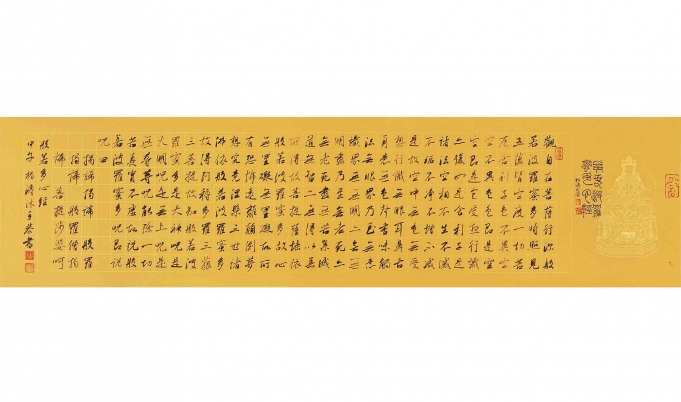 般若波羅
蜜多心經
觀自在菩薩行深般
若波羅蜜多時照見
五蘊皆空度一切苦
厄舍利子色不異空
空不異色色即是空
空即是色受想行識
亦復如是舍利子是
諸法空相不生不滅
不垢不淨不增不減
是故空中無色無受
想行識無眼耳鼻舌
身意無色聲香味觸
法無眼界乃至無意
識界無無明亦無無
明盡乃至無老死亦
無老死盡無苦集滅
道無智亦無得以無
所得故菩提薩埵依
般若波羅蜜多故心
無罣礙無罣礙故無
有恐怖遠離顛倒夢
想究竟涅槃三世諸
佛依般若波羅蜜多
故得阿耨多羅三藐
三菩提故知般若波
羅蜜多是大神呪是
大明呪是無上呪是
無等等呪能除一切
苦真實不虛故說般
若波羅蜜多呪即說
呪曰
揭諦揭諦 般羅
揭諦 般羅僧揭
諦 菩提莎婆呵
般若多心經
甲午 沐手恭書